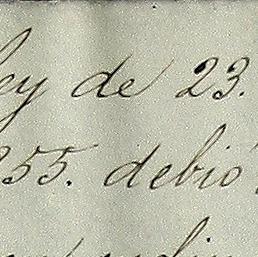 ley de 23.
855. debió